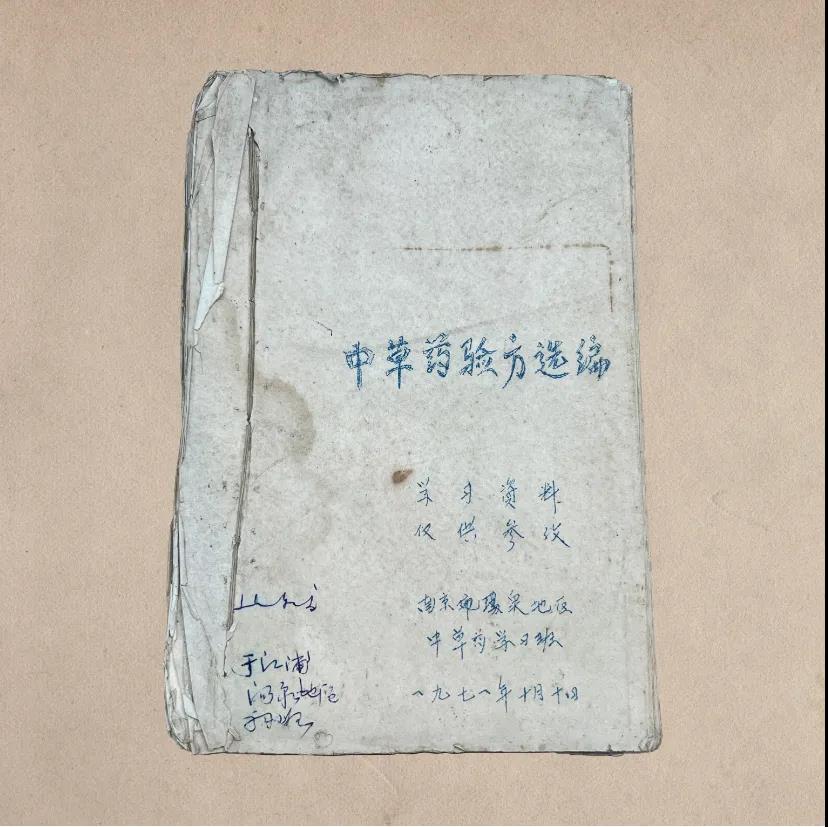 中草药验方选编
学习资料
仅供参攷
南京市汤泉地区
中草药学习班
一九七一年十月十日
于江浦
汤泉地区